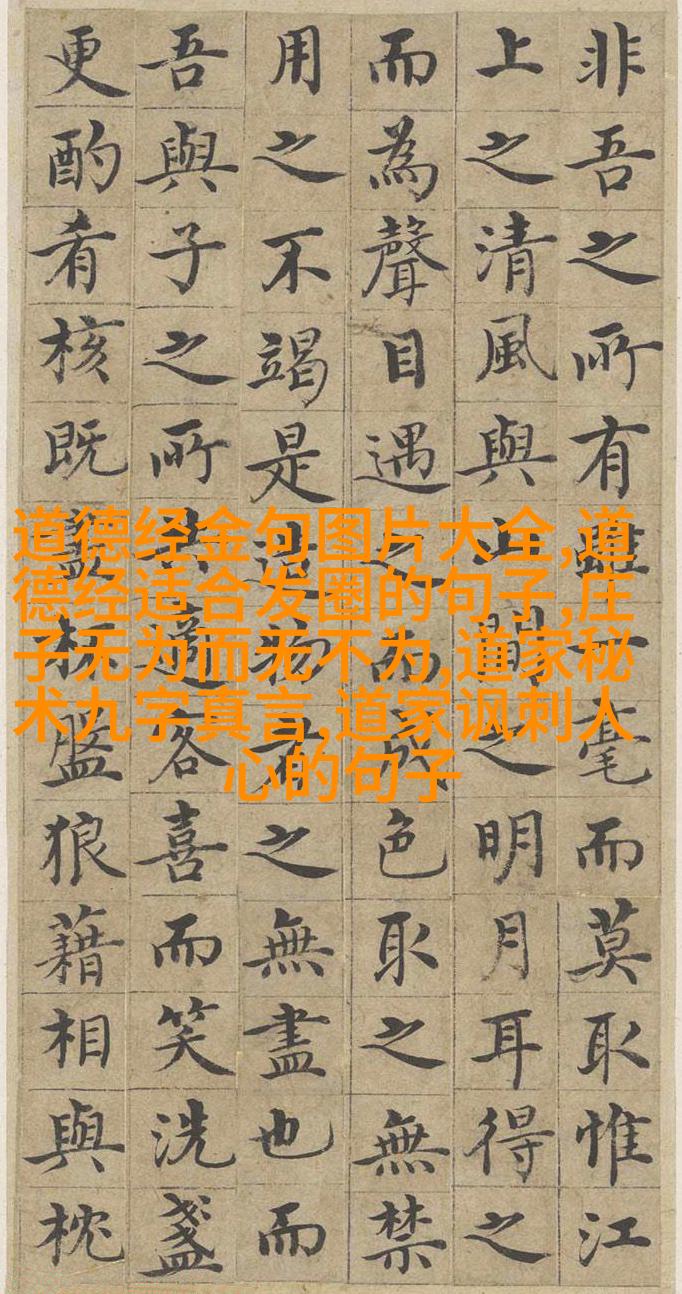 非吾之所有雖一毫而莫取惟江
上之清風與山間之明月耳得之
而為聲目遇之而成色取之無禁
用之不竭是造物者之無盡也而
吾與子之所共適客喜而笑洗盞
更酌肴核既盡杯盤狼藉相與枕
道德经金句图片大全,道
德经适合发圈的句子,庄
子无为而无不为,道家秘
术九字真言,道家讽刺人
心的句子